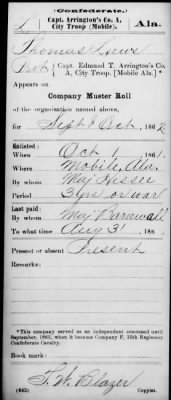 (Confederate.)
L Capt. Arrington's Co. A, City Troop (Mobile). Ala.
Thomas Laws
Pvt., Capt. Edmund T. Arrington's Co. A, City Troop. [Mobile Ala.]*
Appears on
Company Muster Roll
of the organization named above,
for Sept & Oct, 1862.
Enlisted:
When Oct 1, 1861.
Where Mobile, Ala.
By whom Maj Hessee
Period 3 yrs or war
Last paid:
By whom Maj Barnwall
To what time Aug 31, 186 .
Present or absent Present
Remarks:
*This company served as an independent command until
September, 1863, when it became Company F, 15th Regiment
Confederate Cavalry.
Book mark:
S. W. Blazer
(642) Copyist.